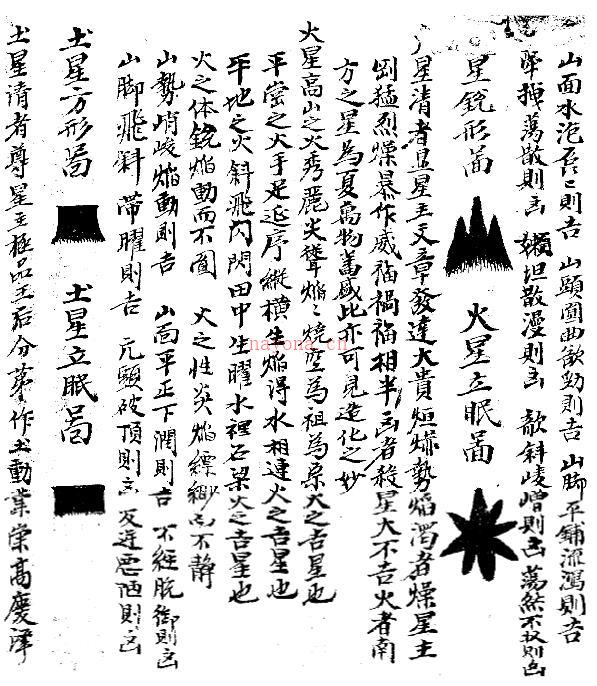 山面水泡吞〻則吉 山顛圓曲欹動則吉 山脚平鋪流瀉則吉
蕩散則凶 嬾坦散漫則凶 欹斜崚嶒則凶 蕩然不收則凶
星銳形啚 火星立眠啚
星清者显星主文章發達大貴烜爀勢焰濁者燥星主
刚猛烈燥暴作威福禍福相半凶者殺星大不吉火者南
方之星為夏萬物蕃盛此亦可見造化之妙
火星高山之火秀麗尖聳焰〻燒空為祖為宗火之吉星也
平崗之火手足迤序縱橫生焰得水相連火之吉星也
平地之火斜飛閃閃田中生曜水裡石梁火之吉星也
火之体銳焰動而不圓 火之性炎焰縹緲而不靜
山勢峭峻焰動則吉 山面平正下濶則吉 不經脫卸則凶
山脚飛斜帶曜則吉 頭破頂則凶 反逆惡陋則凶
土星方形啚 土星立眠啚
土星清者尊星主極品王后分茅作土勳業崇高慶澤
nayona.cn